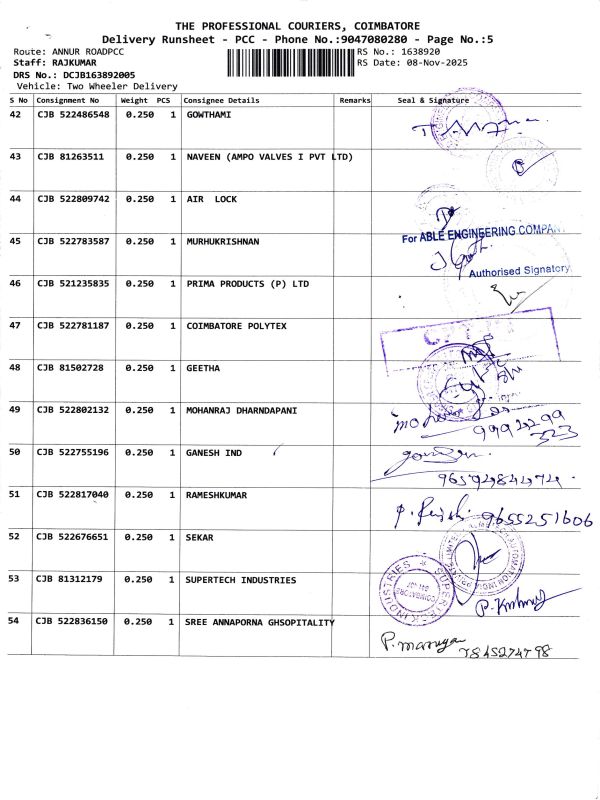 THE PROFESSIONAL COURIERS, COIMBATORE
Delivery Runsheet - PCC - Phone No.:9047080280 - Page No.:5
Route: ANNUR ROADPCC
Staff: RAJKUMAR
DRS No.: DCJB163892005
Vehicle: Two Wheeler Delivery
RS No.: 1638920
RS Date: 08-Nov-2025
S No Consignment No Weight PCS Consignee Details Remarks Seal & Signature
42 CJB 522486548 0.250 1 GOWTHAMI
43 CJB 81263511 0.250 1 NAVEEN (AMPO VALVES I PVT LTD)
44 CJB 522809742 0.250 1 AIR LOCK
For ABLE ENGINEERING COMPANY
45 CJB 522783587 0.250 1 MURHUKRISHNAN
Authorised Signatory
46 CJB 521235835 0.250 1 PRIMA PRODUCTS (P) LTD
47 CJB 522781187 0.250 1 COIMBATORE POLYTEX
48 CJB 81502728 0.250 1 GEETHA
49 CJB 522802132 0.250 1 MOHANRAJ DHARNDAPANI
50 CJB 522755196 0.250 1 GANESH IND
51 CJB 522817040 0.250 1 RAMESHKUMAR
9655251606
52 CJB 522676651 0.250 1 SEKAR
53 CJB 81312179 0.250 1 SUPERTECH INDUSTRIES
SUPERTECH INDUSTRIES
54 CJB 522836150 0.250 1 SREE ANNAPORNA GHSOPITALITY
P. Murugan
7845274798